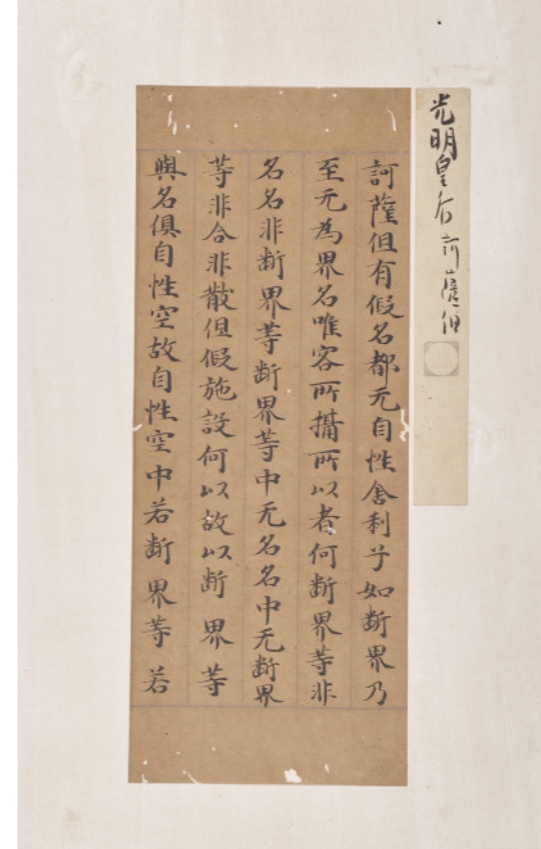 光明皇后 訶薩但
訶薩但有假名都无自性舍利子如断界乃
至无為界名唯客所攝所以者何断界等非
名名非断界等断界等中无名名中无断界
等非合非散但假施設何以故以断界等
與名俱自性空故自性空中若断界等若